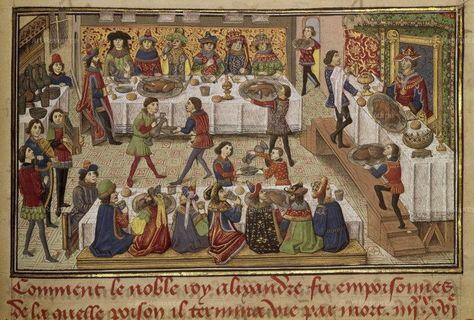 Comment le noble roy alixandre fu empoisonnes
de la quelle poison il termina vie par mort. iiijxx xvi